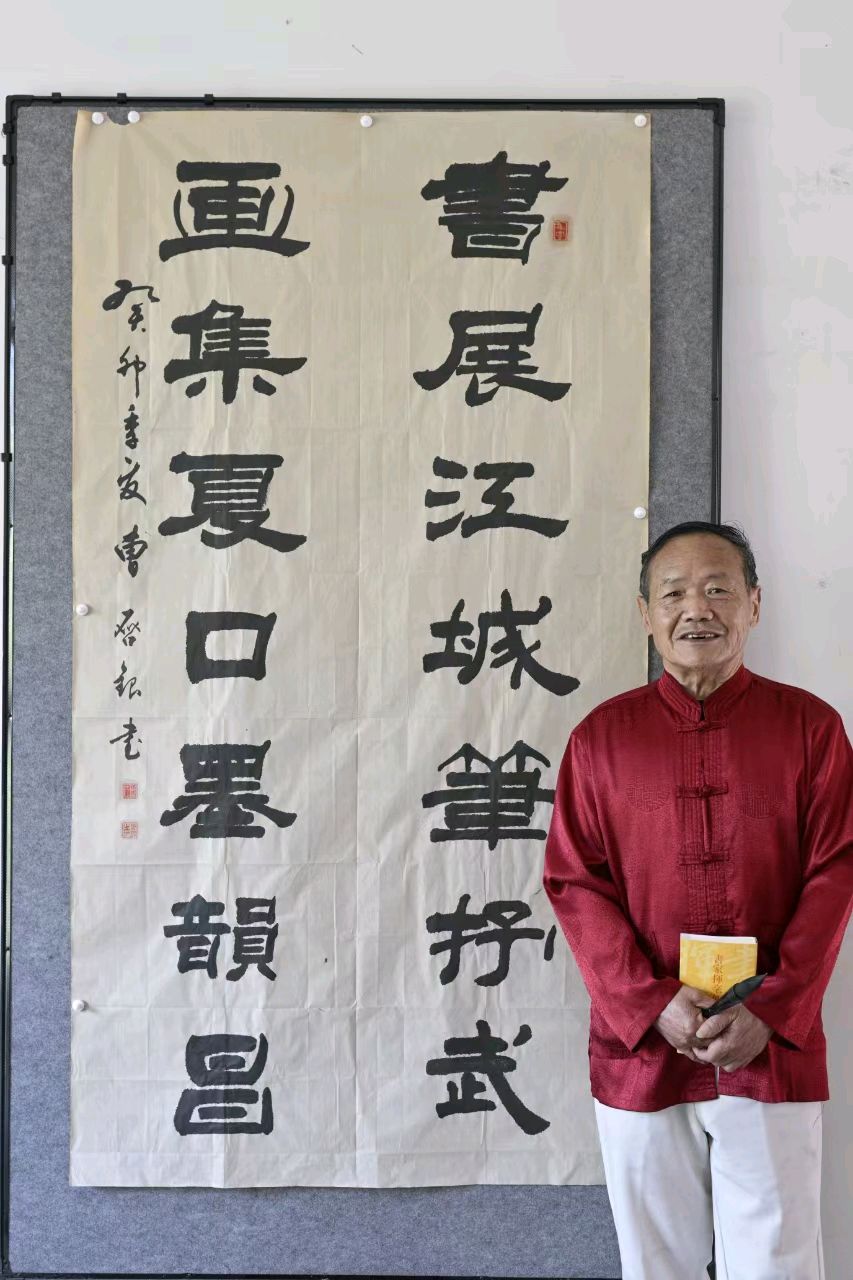 書展江城筆抒武
画集夏口墨韻昌
癸卯季夏曹啓銀书
書家揮